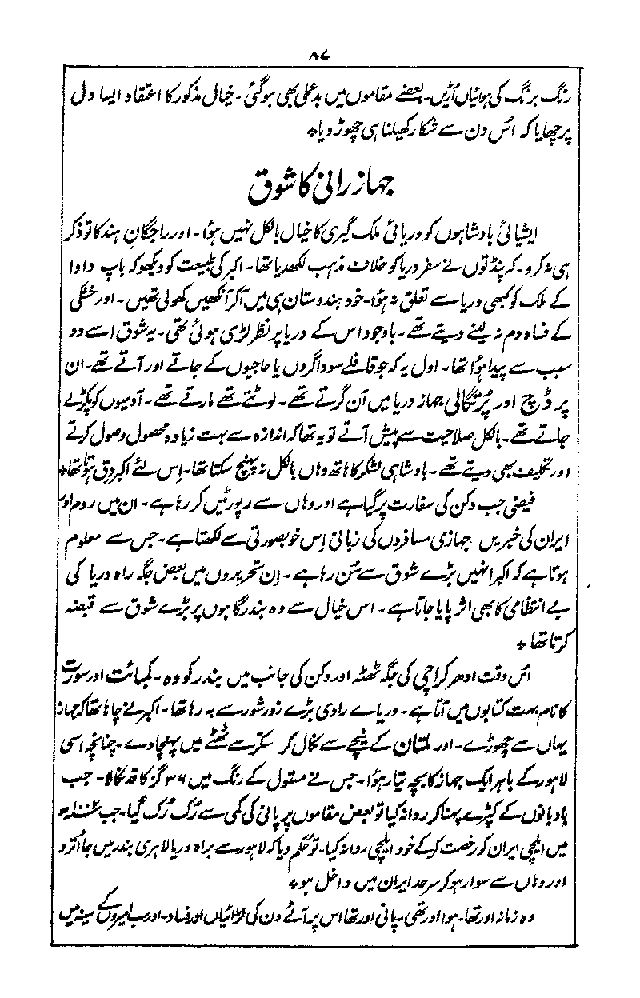 ۸۷
رنگ برنگ کی ہوائیاں اُڑیں۔ بعضے مقاموں میں بدعملی بھی ہو گئی۔ خیال مذکور کا اعتقاد ایسا دل
پر چھایا کہ اُس دن سے شکار کھیلنا ہی چھوڑ دیا٭
جہاز رانی کا شوق
ایشیائی بادشاہوں کو دریائی ملک گیری کا خیال بالکل نہیں ہؤا۔ اور راجگان ہند کا تو ذکر
ہی نہ کرو۔ کہ پنڈتوں نے سفر دریا کو خلاف مذہب لکھدیا تھا۔ اکبر کی طبیعت کو دیکھو کہ باپ دادا
کے ملک کو کبھی دریا سے تعلق نہ ہؤا۔ خود ہندوستان ہی میں آکر آنکھیں کھولی تھیں۔ اور خشکی
کے فساد دم نہ لینے دیتے تھے۔ باوجود اس کے دریا پر نظر لڑی ہوئی تھی۔ یہ شوق اسے دو
سبب سے پیدا ہؤا تھا۔ اول یہ کہ جو قافلے سوداگروں یا حاجیوں کے جاتے اور آتے تھے۔ ان
پر ڈچ اور پرتگالی جہاز دریا میں آن گرتے تھے۔ لوٹتے تھے مارتے تھے۔ آدمیوں کو پکڑ لے
جاتے تھے۔ بالکل صلاحیت سے پیش آتے تو یہ تھا کہ اندازہ سے بہت زیادہ محصول وصول کرتے
اور تکلیف بھی دیتے تھے۔ بادشاہی لشکر کا ہاتھ وہاں بالکل نہ پہنچ سکتا تھا۔ اِس لئے اکبر دق ہوتا تھا٭
فیضی جب دکن کی سفارت پر گیا ہے اور وہاں سے رپورٹیں کر رہا ہے۔ ان میں روم اور
ایران کی خبریں جہازی مسافروں کی زبانی اِس خوبصورتی سے لکھتا ہے۔ جس سے معلوم
ہوتا ہے کہ اکبر انہیں بڑے شوق سے سُن رہا ہے۔ اِن تحریروں میں بعض جگہ راہ دریا کی
بے انتظامی کا بھی اثر پایا جاتا ہے۔ اس خیال سے وہ بندرگاہوں پر بڑے شوق سے قبضہ
کرتا تھا٭
اُس وقت ادھر کراچی کی جگہ ٹھٹہ اور دکن کی جانب میں بندر کووہ۔ کمبائت اور سورت
کا نام بہت کتابوں میں آتا ہے۔ دریاے راوی بڑے زور شور سے بہ رہا تھا۔ اکبر نے چاہا تھا کہ جہاز
یہاں سے چھوڑے۔ اور ملتان کے نیچے سے نکال کر سکر سے ٹھٹے میں پہنچا دے۔ چنانچہ اسی
لاہور کے باہر ایک جہاز کا بچہ تیار ہؤا۔ جس نے مستول کے رنگ میں ۳۶ گز کا قد نکالا۔ جب
بادبانوں کے کپڑے پہنا کر روانہ کیا تو بعض مقاموں پر پانی کی کمی سے رُک رُک گیا۔ جب
میں ایلچی ایران کو رخصت کر کے خود ایلچی روانہ کیا۔ تو حکم دیا کہ لاہور سے براہ دریا لاہری بندر میں جا اُترو
اور وہاں سے سوار ہو کر سرحد ایران میں داخل ہو٭
وہ زمانہ اور تھا۔ ہوا اور تھی۔ پانی اور تھا اس پر آئے دن کی لڑائیاں اور فساد۔ اور سب امیروں کے سینے میں